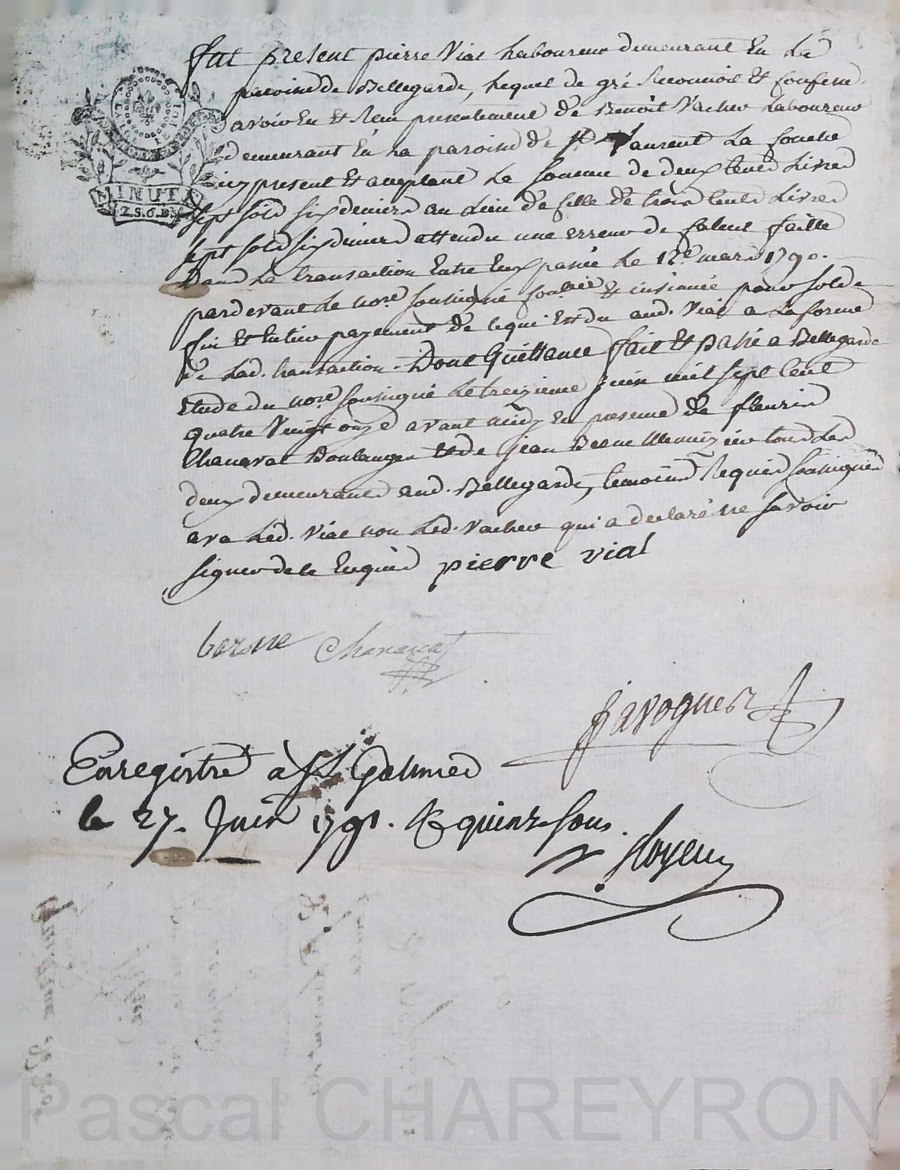 LA LOI LE ROI
MINUTE
2.S.6.D.
fut present pierre Vial Laboureur demeurant En La
paroisse de Bellegarde, Lequel de gré Reconnoit Et confesse
avoir Eu Et Reçu presentement de Benoit Vacher Laboureur
demeurant En La paroisse de St Laurent La Conche
icy present Et acceptant La Somme de deux Cent Livres
sept sols six deniers au Lieu de Celle de trois Cent Livres
sept sols six deniers attendu une erreur de Calcul faitte
Dans La transaction Entre Eux passée Le 12e mars 1790.
pardevant Le nore soussigné Et insinuée pour solde
fin Et Entier payement de ce qui Est du aud. Vial a La forme
de Lad. transaction. Dont Quittance fait Et passé a Bellegarde
Etude du nore soussigné Le treizieme juin mil sept Cent
quatre Vingt onze avant midy En presence de fleurin
Chanavat Boulanger Et de jean Berne Menuizier tous Les
deux demeurants aud. Bellegarde, temoins Requis soussignés
avec Led. Vial non Led. Vacher qui a declaré ne savoir
signer de ce Enquis pierre vial
berne Chanavat
javogues
Enregistré à St Galmier
le 27. Juin 1791. R quinze sous.